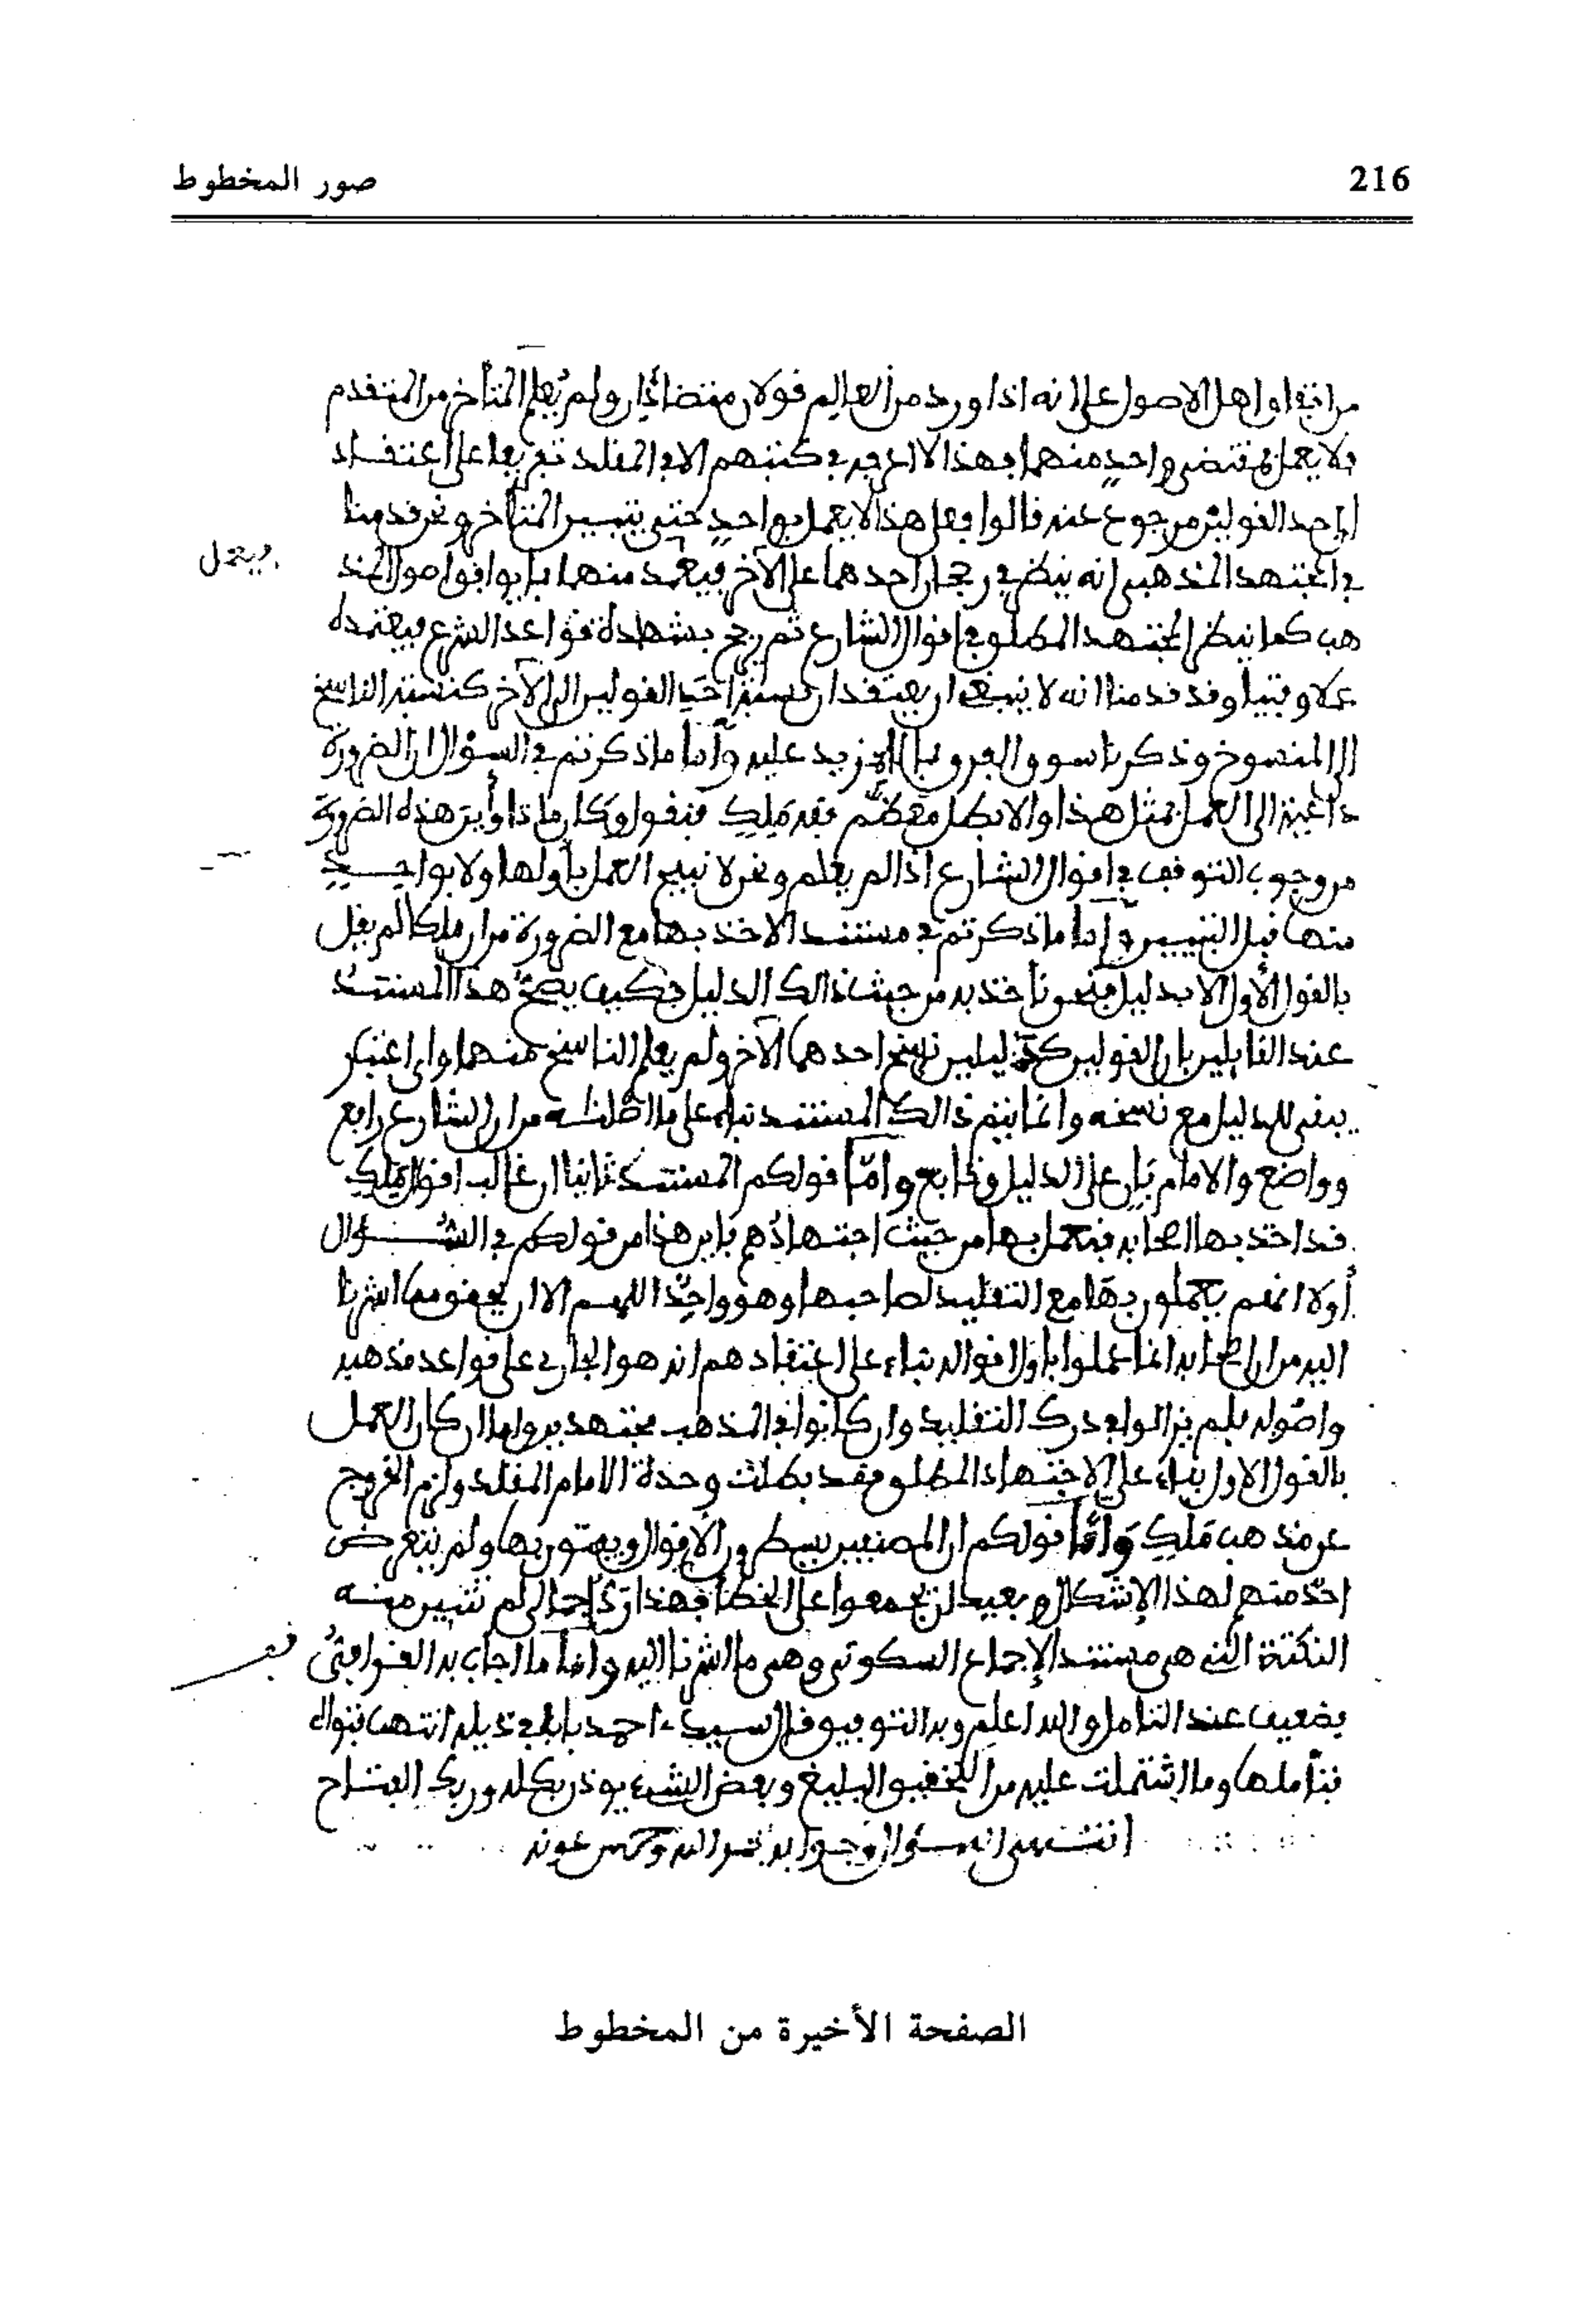 216
صور المخطوط
من اتفاق اهل الاصول على انه اذا ورد من العالم قولان متضادان ولم يعلم المتأخر من المتقدم
فلا يعمل بمقتضى واحد منهما وهذا لا في كتبهم الا في المقلد تفريعا على اعتقاد
احد القولين مرجوع عنه قالوا فعلى هذا لا يعمل بواحد حتى يتبين المتأخر ونحن قدمنا
في مجتهد المذهب انه ينظر في رجحان احدهما على الآخر فيعمد منهما ما يوافق اصول المذ
فيعمل
هب كما ينظر المجتهد المطلق في اقوال الشارع ثم يرجح بشهادة قواعد الشرع فيعتمده
عملا وفتيا وقد قدمنا انه لا ينبغي ان يعتقد ان نسبة احد القولين الى الآخر كنسبة الناسخ
الى المنسوخ وذكرنا سوق الفرق بما لا مزيد عليه وأما ما ذكرتم في السؤال ان الضرورة
داعية الى العمل بمثل هذا والا بطل معظم فقه ملك فنقول وكان ماذا وأين هذه الضرورة
من وجوب التوقف في اقوال الشارع اذا لم يعلم ونحن لا نبيح العمل بأولها ولا بواحد
منها قبل التبيين وأما ما ذكرتم في مستند الاخذ بها مع الضرورة من ان ملكا لم يقل
بالقول الأول الا بدليل فنحن نأخذ به من حيث ذالك الدليل فكيف يصح هذا المستند
عند القايلين بان القولين كدليلين نسخ احدهما الآخر ولم يعلم الناسخ منهما واي اعتبار
يبقى للدليل مع نسخه وانما يتم ذالك المستند بناء على ما اصلناه من ان الشارع رافع
وواضع والامام بان على الدليل وتابع وامّا قولكم المستند ثانيا ان غالب اقوال ملك
قد اخذ بها اصحابه فيعمل بها من حيث اجتهادهم فاين هذا من قولكم في السؤال
أولا انهم يعملون بها مع التقليد لصاحبها وهو واحد اللهم الا ان يعنوا ما اشرنا
اليه من ان اصحابه انما عملوا باول اقواله بناء على اعتقادهم انه هو الجاري على قواعد مذهبه
واصوله فلم يزالوا في درك التقليد وان كانوا في المذهب مجتهدين واما ان كان العمل
بالقول الاول بناء على الاجتهاد المطلق فقد بطلت وحدة الامام المقلد ولزم الخروج
عن مذهب ملك وأما قولكم ان المصنفين يسطرون الاقوال ويفتون بها ولم يتعرض
احد منهم لهذا الإشكال وبعيد ان يجمعوا على الخطأ فهذا ردّ اجمالي لم تتبين منه
النكتة التي هي مستند الإجماع السكوتي وهي ما اشرنا اليه واما ما اجاب به القرافي
فضعيف عند التأمل والله اعلم وبه التوفيق قال سيدي احمد بابا في ذيله انتهت فتواه
فتأملها وما اشتملت عليه من التحقيق البليغ وبعض الشيء يوذن بكله وربك الفتاح
انتهى السؤال وجوابه بحمد الله وحسن عونه
الصفحة الأخيرة من المخطوط